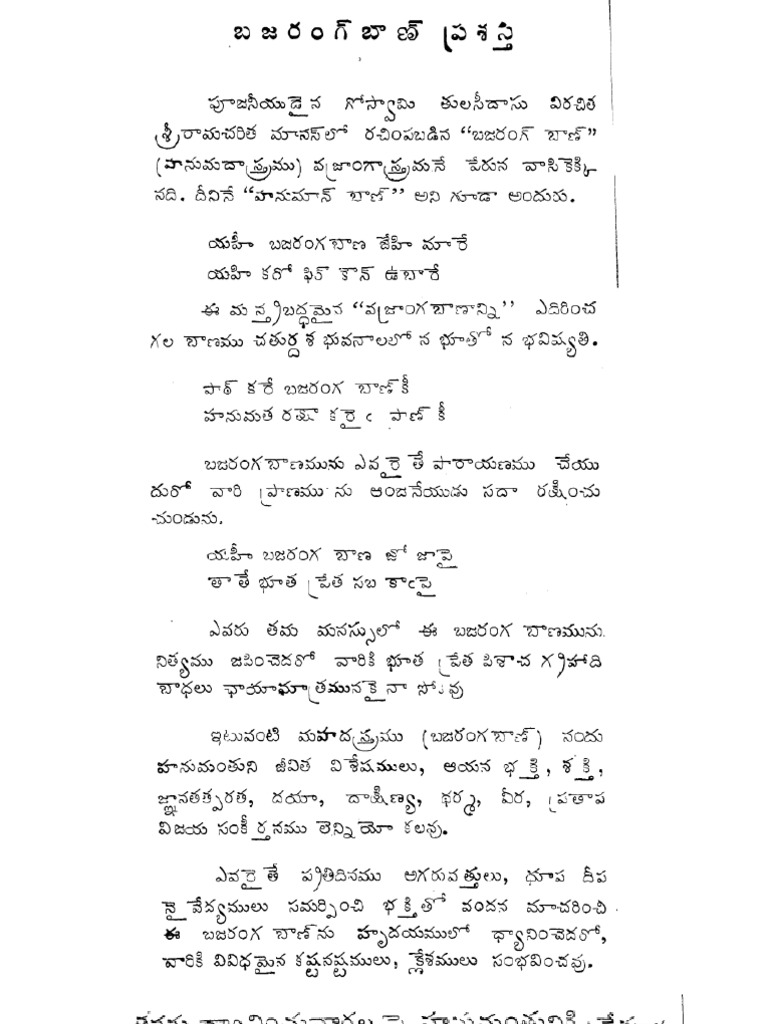 బజరంగ్‌బాణ్ ప్రశస్తి
పూజనీయుడైన గోస్వామి తులసీదాసు విరచిత
శ్రీరామచరిత మానస్‌లో రచింపబడిన “బజరంగ్ బాణ్”
(హనుమదాస్త్రము) వజ్రాంగాస్త్రమనే పేరున వాసికెక్కి
నది. దీనినే “హనుమాన్ బాణ్” అని గూడా అందురు.
యహీ బజరంగబాణ జేహి మారే
యహి కహో ఫిర్ కౌన్ ఉబారే
ఈ మన్త్రిబద్ధమైన “వజ్రాంగబాణాన్ని” ఎదిరించ
గల బాణము చతుర్దశ భువనాలలో న భూతో న భవిష్యతి.
పాఠ్ కరే బజరంగ బాణ్‌కీ
హనుమత రక్షా కరైఁ ప్రాణ్ కీ
బజరంగబాణమును ఎవరైతే పారాయణము చేయు
దురో వారి ప్రాణమును ఆంజనేయుడు సదా రక్షించు
చుండును.
యహీ బజరంగ బాణ జో జాపై
తాతే భూత ప్రేత సబ కాఁపై
ఎవరు తమ మనస్సులో ఈ బజరంగ బాణమును
నిత్యము జపించెదరో వారికి భూత ప్రేత పిశాచ గ్రహాది
బాధలు ఛాయామాత్రమునకైనా సోకవు
ఇటువంటి మహదస్త్రము (బజరంగబాణ్) నందు
హనుమంతుని జీవిత విశేషములు, ఆయన భక్తి, శక్తి,
జ్ఞానతత్పరత, దయా, దాక్షిణ్య, ధర్మ, వీర, ప్రతాప
విజయ సంకీర్తనము లెన్నియో కలవు.
ఎవరైతే ప్రతిదినము అగరువత్తులు, ధూప దీప
నైవేద్యములు సమర్పించి భక్తితో వందన మాచరించి
ఈ బజరంగ బాణ్‌ను హృదయములో ధ్యానించెదరో,
వారికి వివిధమైన కష్టనష్టములు, క్లేశములు సంభవించవు.